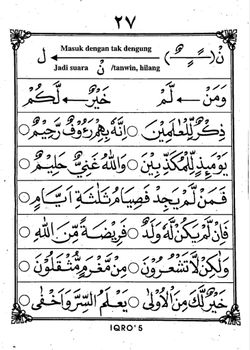 ٢٧
Masuk dengan tak dengung
نْ ( ـًـ ـٍـ ـٌـ ) ← ل
Jadi suara نْ /tanwin, hilang
وَمَنْ ← لَّمْ خَيْرٌ ← لَّكُمْ
ذِكْرٌ لِّلْعٰلَمِيْنَ ○ اِنَّهٗ بِهِمْ رَءُوْفٌ رَّحِيْمٌ ○
يَوْمَئِذٍ لِّلْمُكَذِّبِيْنَ ○ وَاللّٰهُ غَنِيٌّ حَلِيْمٌ ○
فَمَنْ لَّمْ يَجِدْ فَصِيَامُ ثَلٰثَةِ اَيَّامٍ ○
فَاِنْ لَّمْ يَكُنْ لَّهٗ وَلَدٌ ○ فَرِيْضَةً مِّنَ اللّٰهِ ○
وَلٰكِنْ لَّا تَشْعُرُوْنَ ○ مِنْ مَّغْرَمٍ مُّثْقَلُوْنَ ○
خَيْرٌ لَّكَ مِنَ الْاُوْلٰى ○ يَعْلَمُ السِّرَّ وَاَخْفٰى ○
IQRO' 5